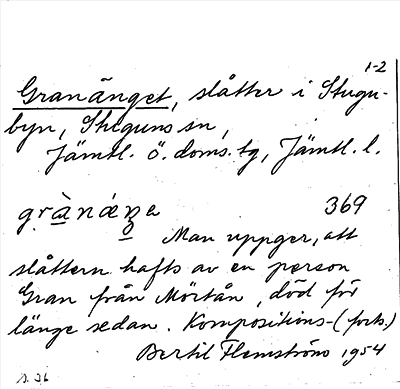 1-2
Granänget, slåtter i Stugu-
byn, Stuguns sn,
Jämtl. ö. doms. tg, Jämtl. l.
369
Man uppger, att
slåttern hafts av en person
Gran från Mörtån, död för
länge sedan. Kompositions-(forts.)
Bertil Flemström 1954
s. 36